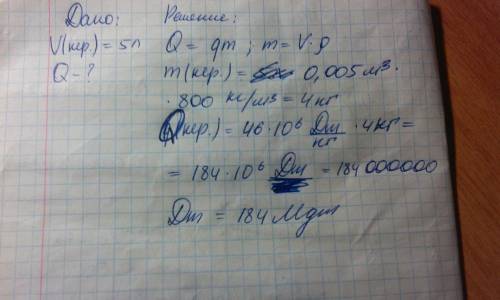 Дано:
Решение:
V(кер.) = 5л
Q - ?
Q = qm ; m = V·ρ
m(кер.) = 0,005 м³ ·
· 800 кг/м³ = 4 кг
Q(кер.) = 46·10⁶ Дж/кг · 4 кг =
= 184·10⁶ Дж = 184 000000
Дж = 184 Мдж